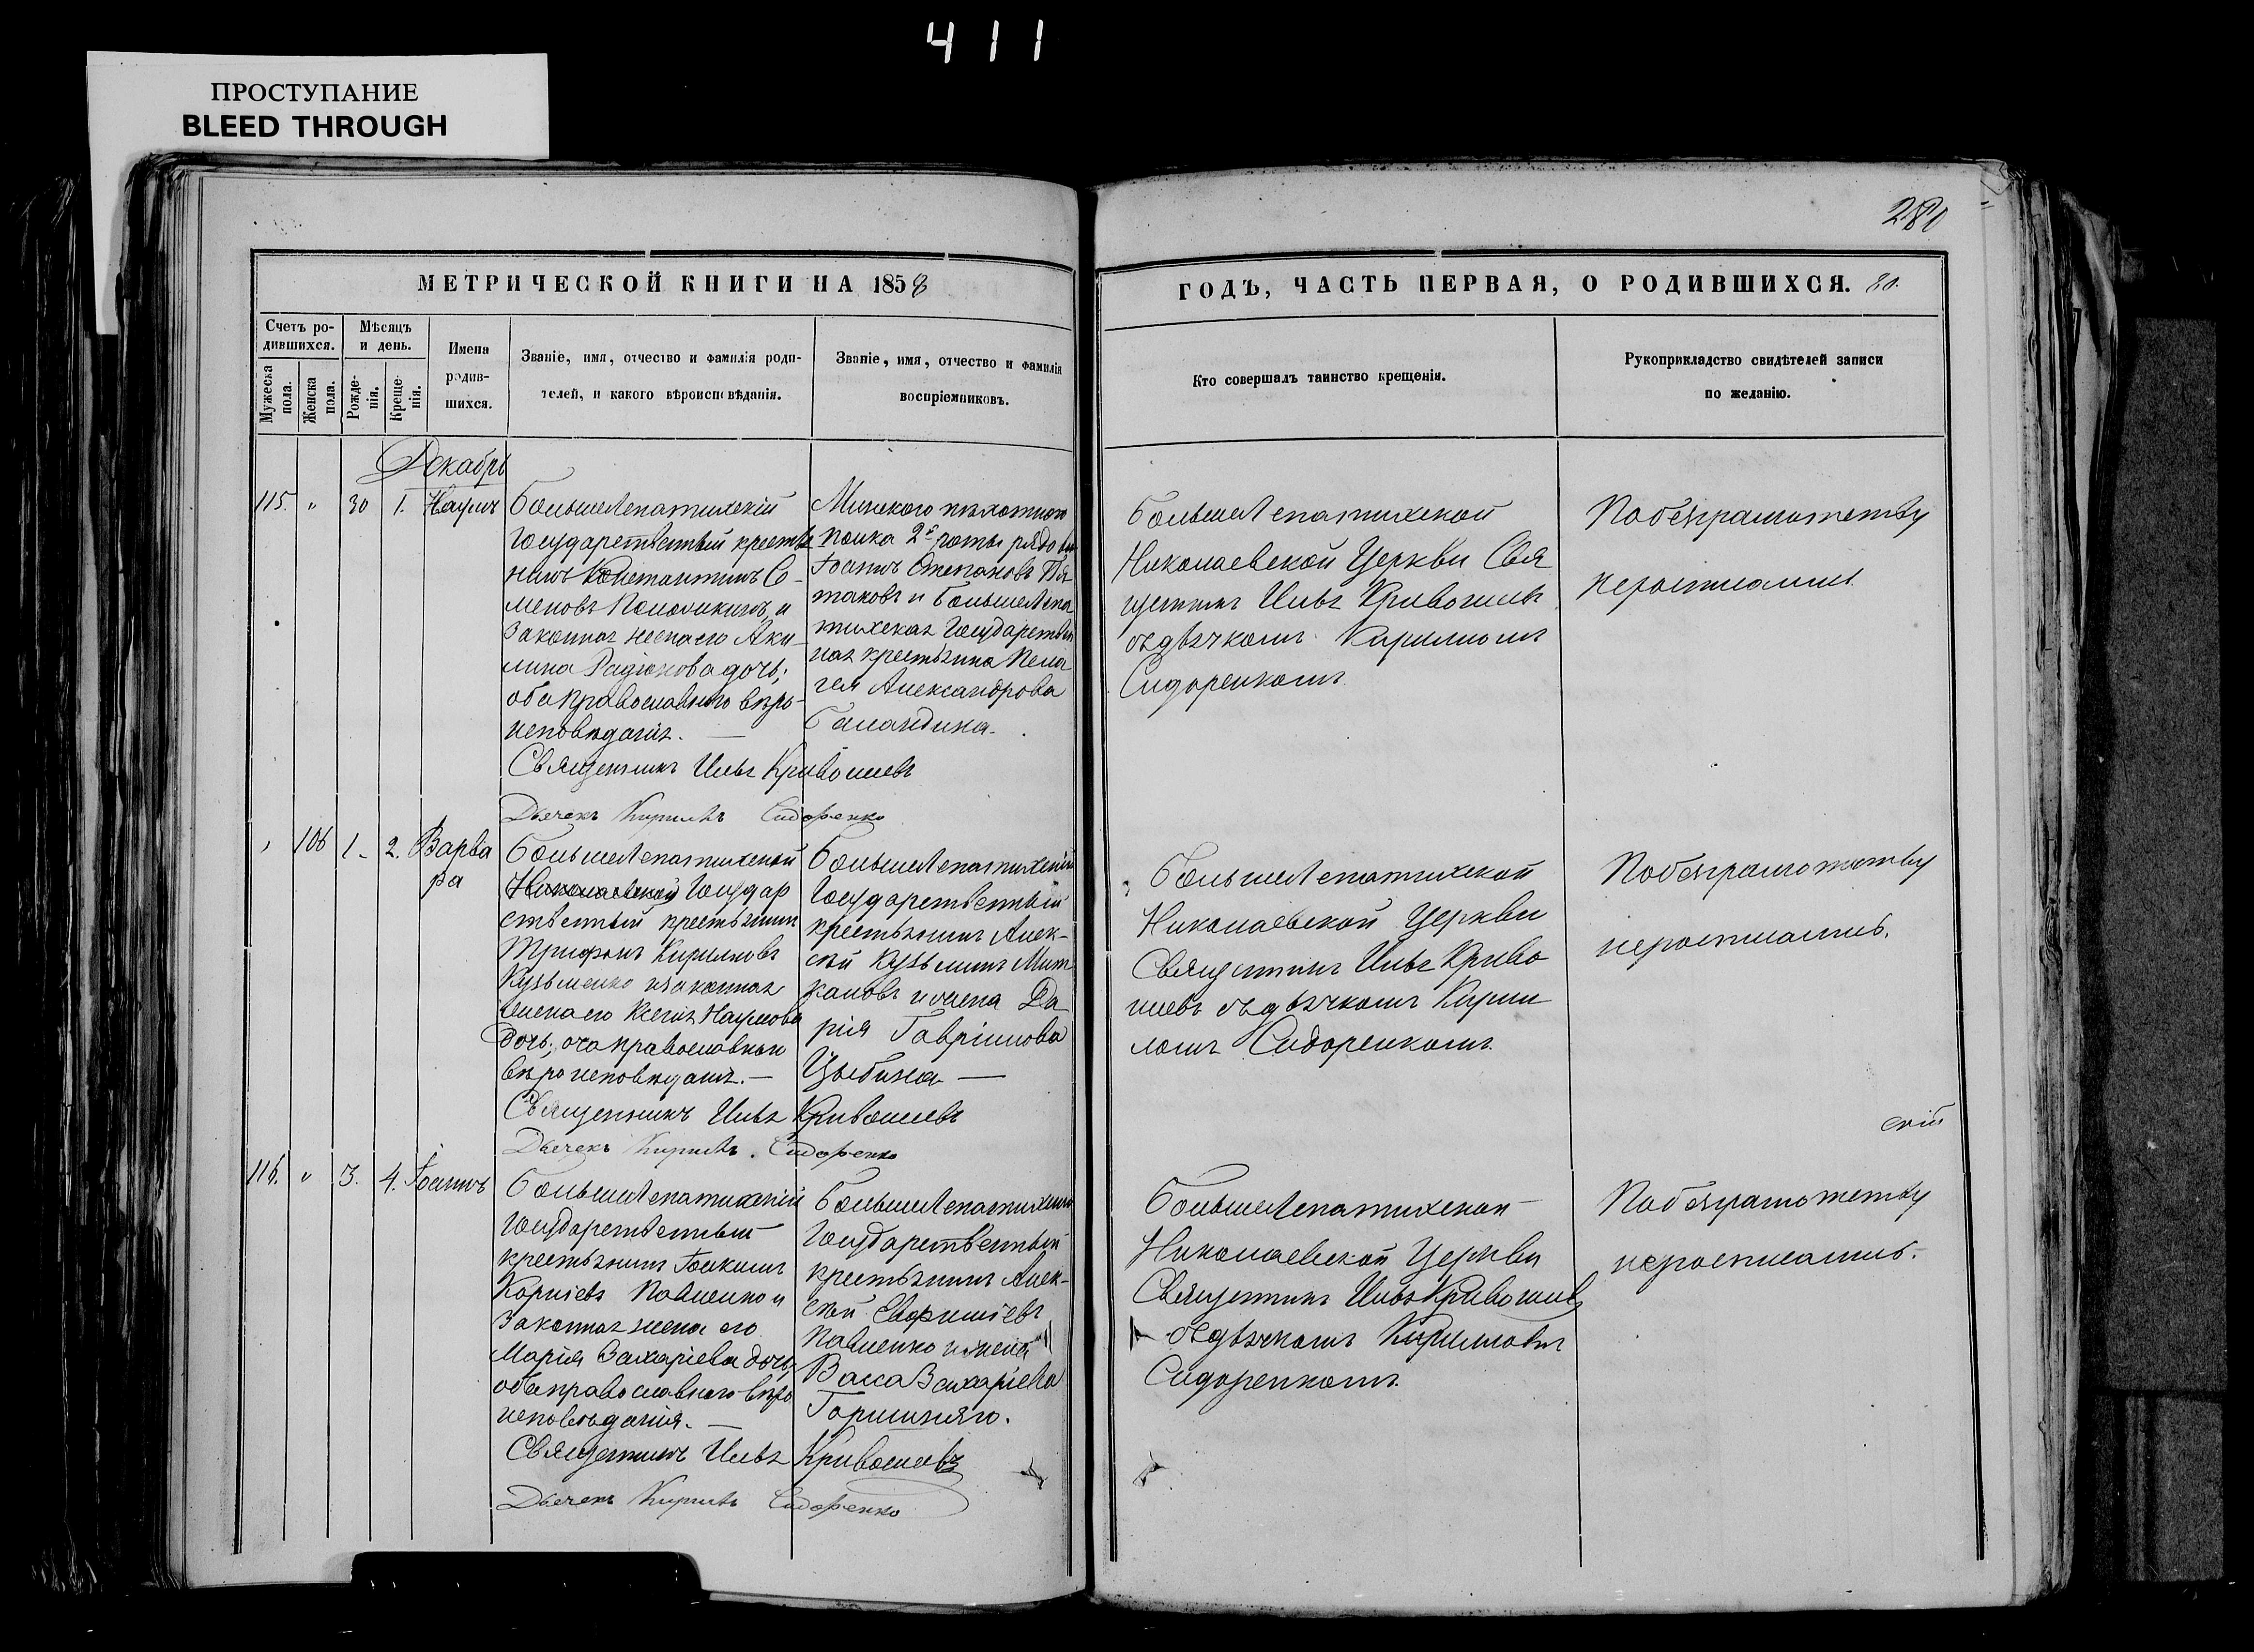 411
ПРОСТУПАНИЕ
BLEED THROUGH
280
МЕТРИЧЕСКОЙ КНИГИ НА 1858
ГОДЪ, ЧАСТЬ ПЕРВАЯ, О РОДИВШИХСЯ. 80.
Счетъ ро-
дившихся.
Мужеска пола.
Женска пола.
Мѣсяцъ
и день.
Рожде-
нія.
Креще-
нія.
Имена
родив-
шихся.
Званіе, имя, отчество и фамилія роди-
телей, и какого вѣроисповѣданія.
Званіе, имя, отчество и фамилія
воспріемниковъ.
Кто совершалъ таинство крещенія.
Рукоприкладство свидѣтелей записи
по желанію.
Декабрь
115. " 30 1. Наумъ
БольшеЛепатихскій
Государственный крестья
нинъ Константинъ Се-
меновъ и
Законная жена его Аки-
лина Радіонова дочь;
оба православного вѣро-
исповѣданія. —
Священникъ Илья Кривошеевъ
Дьячекъ Кирилъ Сидоренко
Минского пѣхотного
полка 2й роты рядовой
Іоаннъ Степановъ Пя
таковъ и БольшеЛепа
тихская Государствен
ная крестьянка Пела
гея Александрова
Баландина.
БольшеЛепатихской
Николаевской Церкви Свя
щенникъ Илья Кривошеевъ
съ дьячкомъ Кириломъ
Сидоренкомъ
Побезграмотству
неросписались
, 106 1. 2. Варва
ра
БольшеЛепатихской
Николаевской Государ
ственный крестьянинъ
Трифонъ Кириловъ
Кузьменко и законная
жена его Ксенія Наумова
дочь; оба православнаго
вѣроисповѣданія. —
Священникъ Илья Кривошеевъ
Дьячекъ Кирилъ Сидоренко
БольшеЛепатихскій
Государственный
крестьянинъ Алек-
сѣй Кузьминъ Мит
и жена Да
рія Гавріилова
Цыбина —
БольшеЛепатихской
Николаевской Церкви
Священникъ Илья Криво
шеевъ съ дьячкомъ Кирил
ломъ Сидоренкомъ.
Побезграмотству
неросписались.
скій
116. " 3. 4. Іоаннъ
БольшеЛепатихскій
Государственный
крестьянинъ Іоакимъ
Корніевъ Павленко и
Законная жена его
Марія Захаріева дочь,
оба православного вѣро
исповѣданія. —
Священникъ Илья Кривошеевъ
Дьячекъ Кирилъ Сидоренко
БольшеЛепатихскій
Государственный
крестьянинъ Алек-
сѣй
Павленко и жена
Васса Захаріева
БольшеЛепатихской
Николаевской Церкви
Священникъ Илья Кривошеевъ
съ дьячкомъ Кириловымъ
Сидоренкомъ.
Побезграмотству
неросписались.